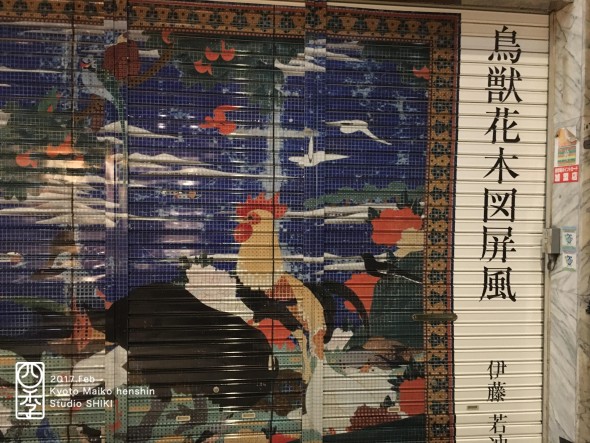 鳥獣花木図屏風
伊藤 若冲
四季
2017.Feb
Kyoto Maiko henshin
Studio SHIKI